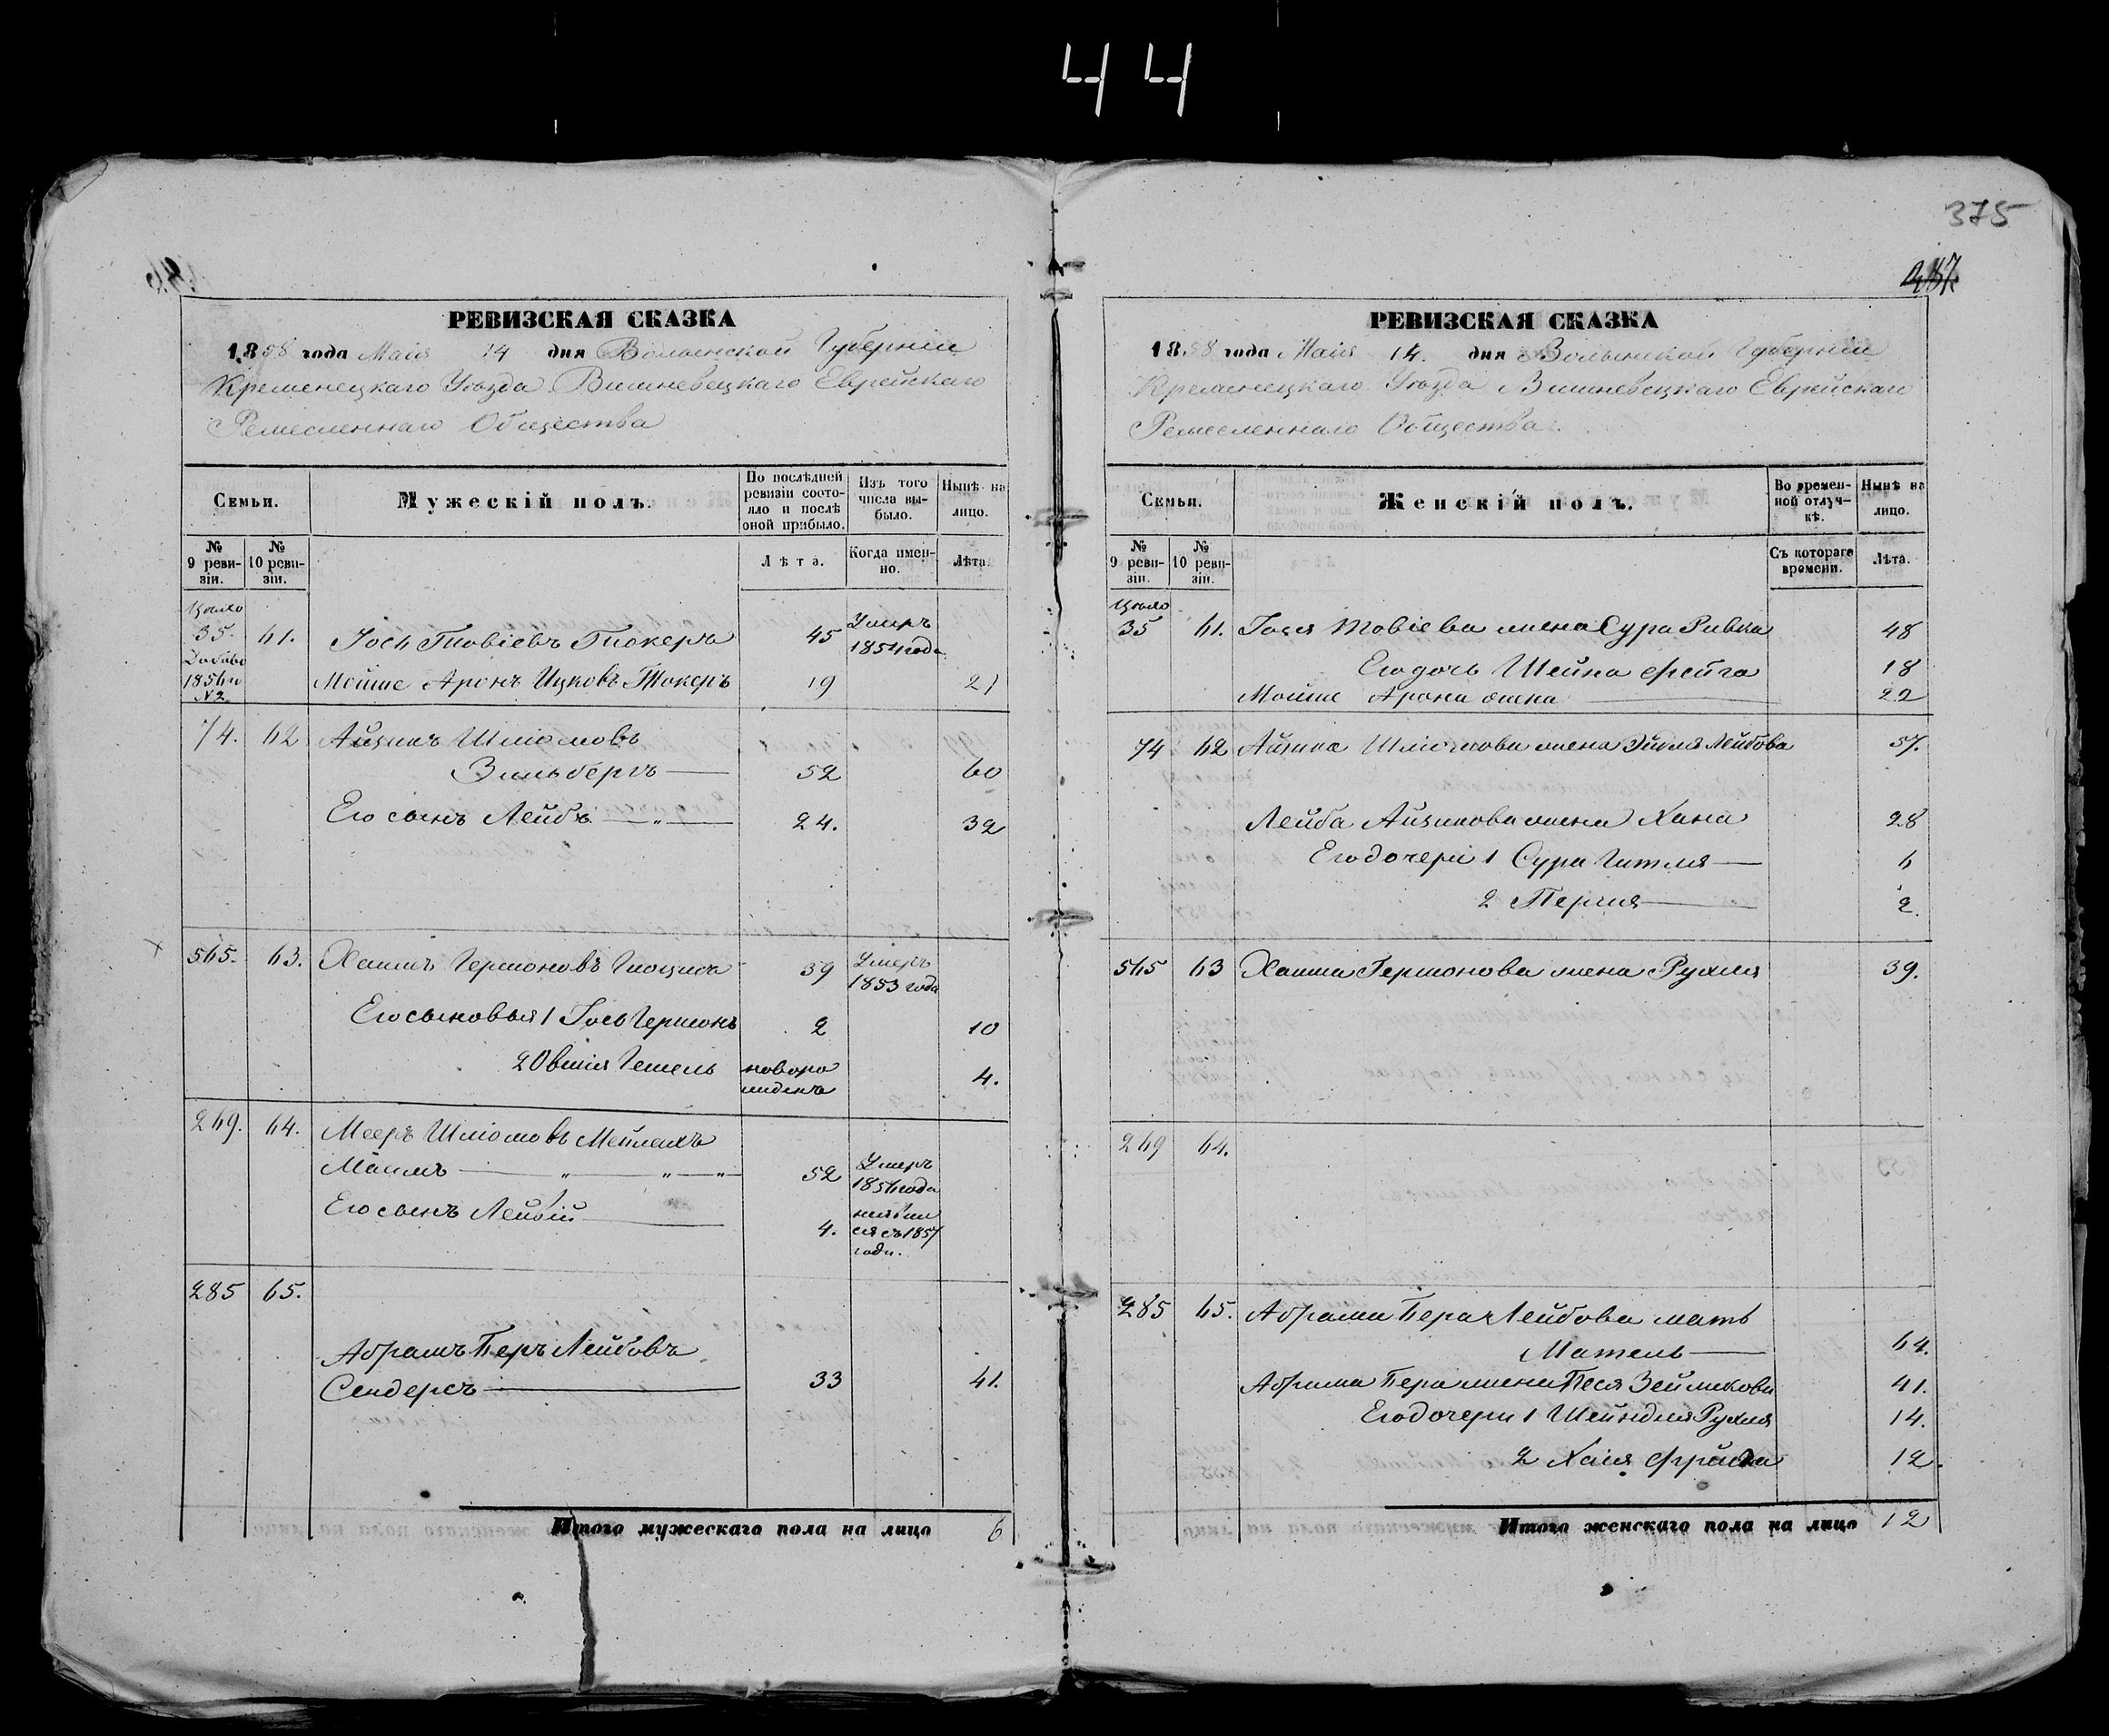 44
375
РЕВИЗСКАЯ СКАЗКА
1858 года Маія 14 дня Волынской Губерніи
Кременецкаго Уѣзда Вишневецкаго Еврейскаго
Ремесленнаго Общества
Семьи.
Мужескій полъ.
По послѣдней ревизіи состояло и послѣ оной прибыло.
Изъ того числа выбыло.
Нынѣ на лицо.
№ 9 ревизіи.
№ 10 ревизіи.
Лѣта.
Когда именно.
Лѣта.
35. 61. Іось Товіевъ Токеръ 45 Умеръ 185 года
185 №2 Мойше Аронъ Ицковъ Токеръ 19 21
74. 62 Айзикъ Шліомовъ
Зильберъ 52 60
Его сынъ Лейбъ 24. 32
565. 63. Хаимъ Гершоновъ 39 Умеръ 1853 года
Его сыновья 1 Іось Гершонъ 2 10
2 Овшія Гешель новорожденъ 4.
269. 64. Мееръ Шліомовъ Мейлахъ
52 Умеръ 185 года
Его сынъ Лейбій 4. съ 1857 года.
285 65.
Абрамъ Беръ Лейбовъ
Сендеръ 33 41.
Итого мужескаго пола на лицо 6
РЕВИЗСКАЯ СКАЗКА
1858 года Маія 14. дня Волынской Губерніи
Кременецкаго Уѣзда Вишневецкаго Еврейскаго
Ремесленнаго Общества.
Семьи.
Женскій полъ.
Во временной отлучкѣ.
Нынѣ на лицо.
№ 9 ревизіи.
№ 10 ревизіи.
Съ котораго времени.
Лѣта.
35 61. Іося Товіева жена Сура Ривка 48
Его дочь Шейна Фейга 18
Мойше Арона жена 22
74 62 Айзика Шліомова жена Лейбова 57.
Лейба Айзикова жена Хана 28
Его дочери 1 Сура Гитля 6
2 Перля 2.
565 63 Хаима Гершонова жена Рухля 39.
269 64.
285 65. Абрама Бера Лейбова мать
Матель 64.
Абрама Бера жена Песя Зейликова 41.
Его дочери 1 Шейндля Рухля 14.
2 Хая Фрейда 12.
Итого женскаго пола на лицо 12